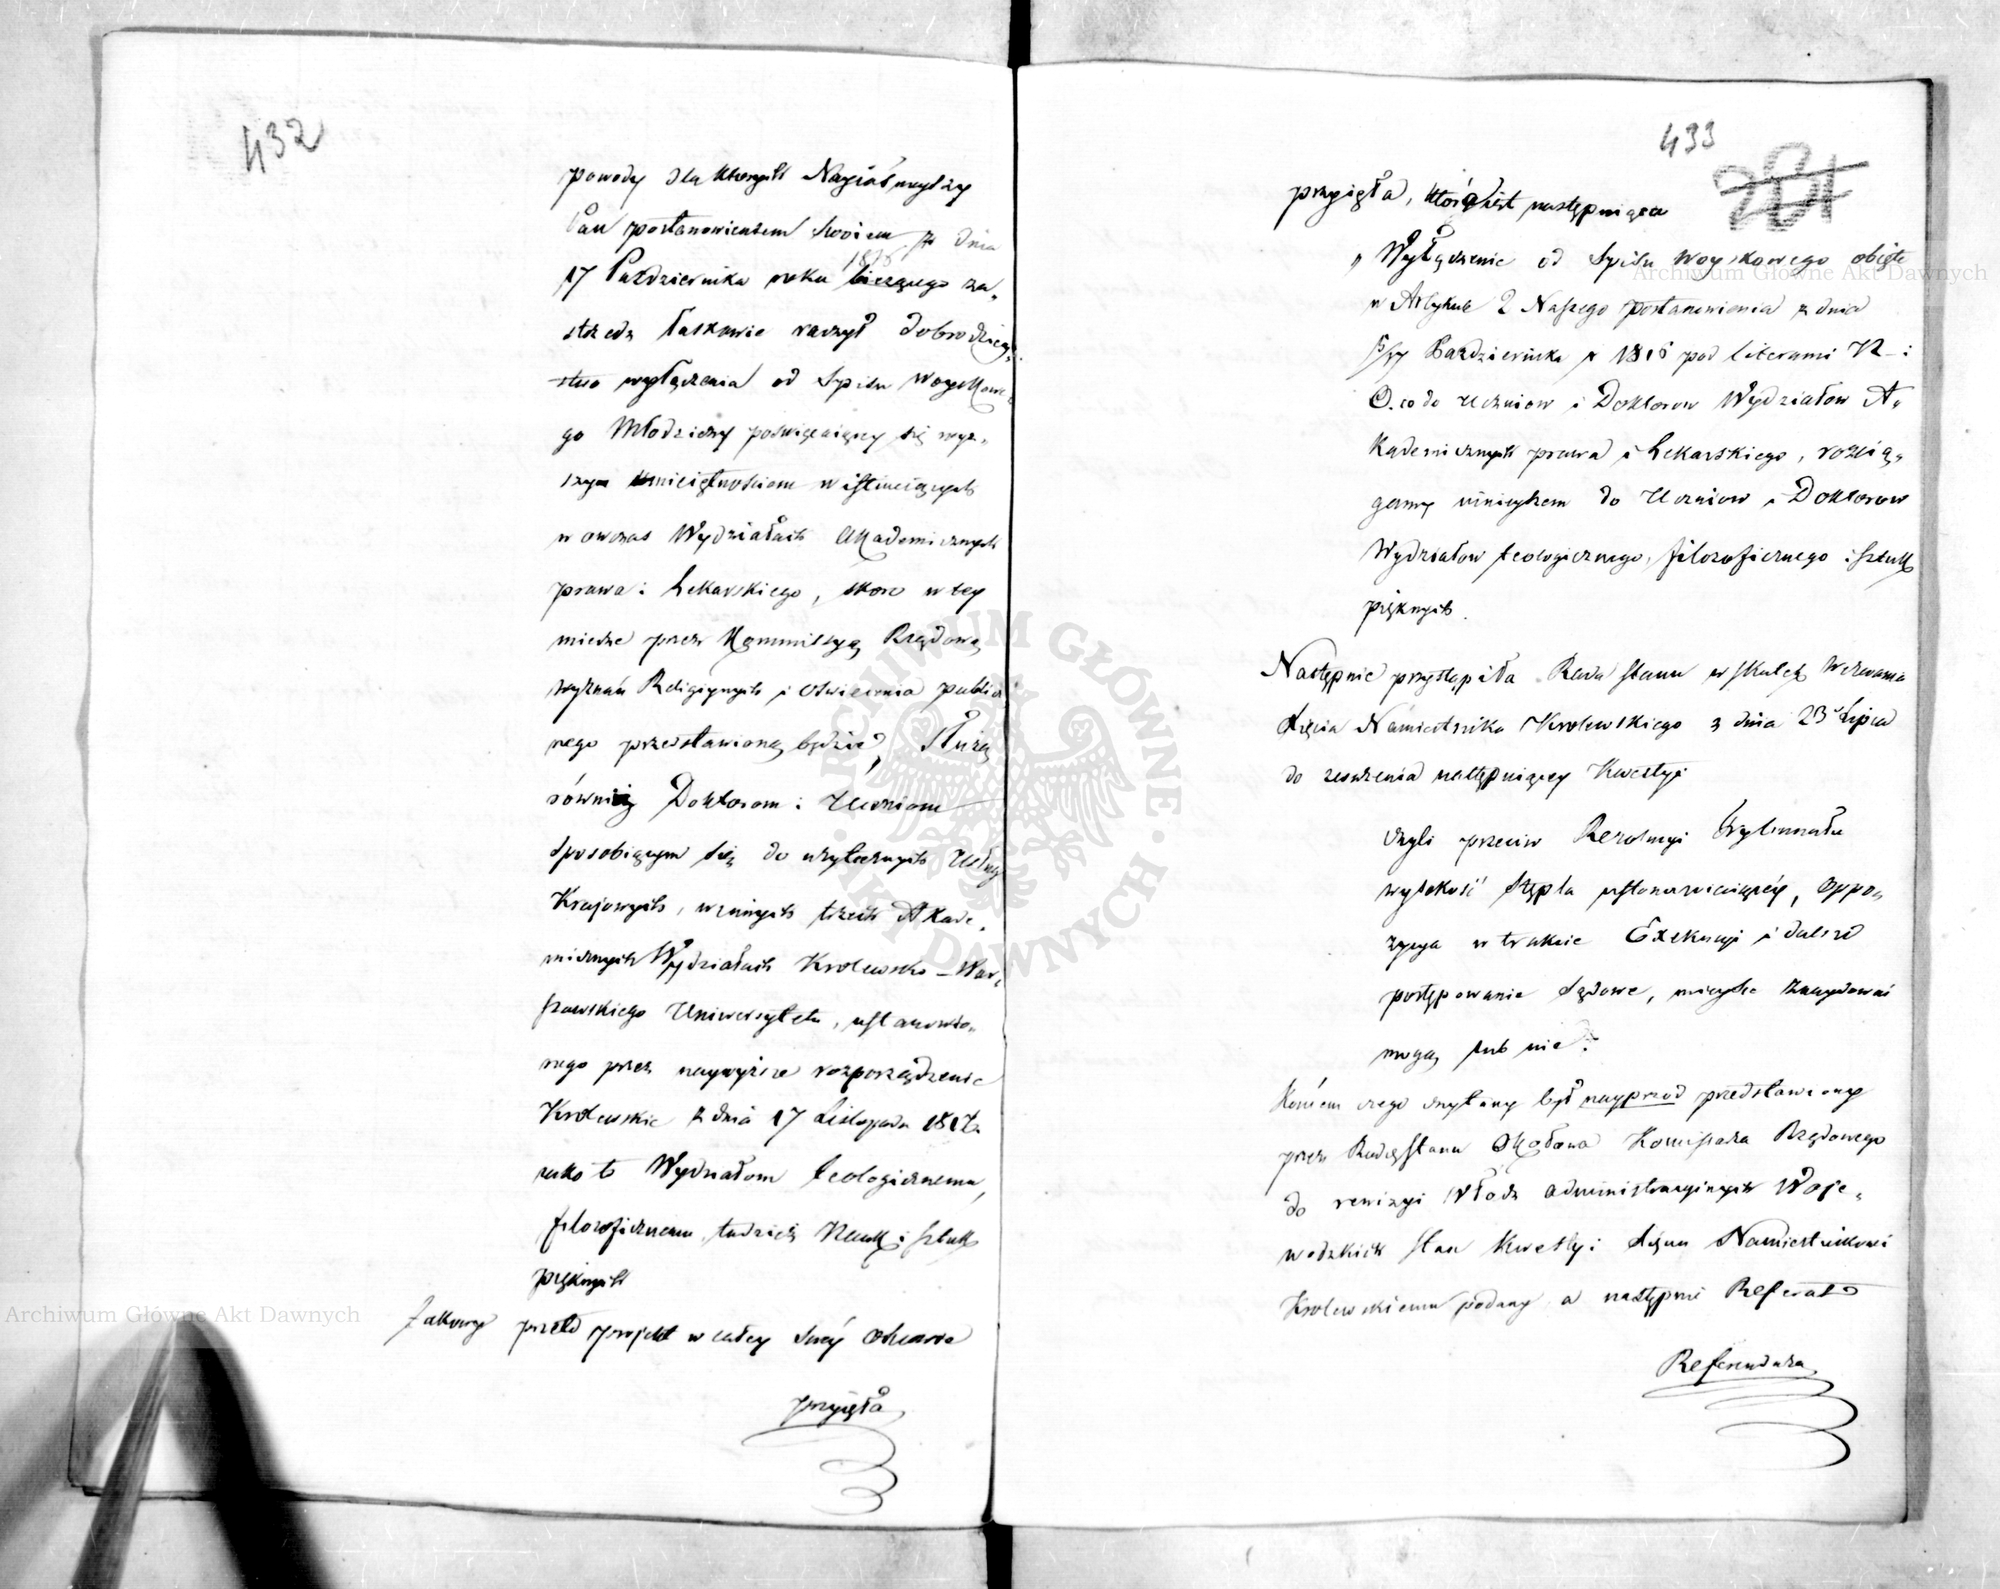 432
powody dla których Nayiaśnieyszy
Pan postanowieniem Swoiem z dnia
17 Października roku bieżącego za„
1816
strzedz łaskawie raczył dobrodziey„
stwo wyłączenia od Spisu Woyskowe„
go Młodzieży poświęcaiącey się wyż„
szym umieiętnościom w istnieiących
w owczas Wydziałach Akademicznych
prawa i Lekarskiego, skoro w tey
mierze przez Kommissyą Rządową
wyznań Religiynych i oświecenia publicz
nego przedstawioną będzie, służą
równiez Doktorom i Uczniom
sposobiącym się do użytecznych Usług
Krajowych, w innych trzech Akade„
micznych Wydziałach Krolewsko-War„
szawskiego Uniwersytetu, ustanowio„
nego przez naywyższe rozporządzenie
Krolewskie z dnia 17 Listopada 1817.
iako to Wydziałom teologicznemu,
filozoficznemu, tudzież Nauk i Sztuk
pięknych
Zakowy przeto projekt w całey swéy osnowie
przyięła
433
przyięła, która iest następuiąca
„ Wyłączenie od Spisu Woyskowego obięte
w Artykule 2 Naszego postanowienia z dnia
5/17 Października r 1816 pod literami N i
O. co do Uczniow i Doktorow Wydziałow A„
kademicznych prawa i Lekarskiego, rozcią„
gamy ninieyszem do Uczniow i Doktorow
Wydziałow teologicznego, filozoficznego i Sztuk
pięknych.
Następnie przystąpiła Rada Stanu w skutek Wezwania
Xięcia Namiestnika Krolewskiego z dnia 23 Lipca
do rozważenia następuiącey Kwestyi
czyli przeciw Rezolucyi Trybunału
wysokość Stępla ustanawiaiącéy, oppo„
zycya w trakcie Exekucyi i dalsze
postępowanie sądowe, mieysce znaydować
mogą lub nie?
Koncem czego czytany był nayprzod przedstawiony
przez Radcę Stanu Okołowa Komisarza Rządowego
do rewizyi Władz administracyinych Woje„
wodzkich stan Kwestyi Xięciu Namiestnikowi
Krolewskiemu podany a następnie Referat
Referendarza
Archiwum Główne Akt Dawnych
Archiwum Główne Akt Dawnych
ARCHIWUM GŁÓWNE · AKT DAWNYCH ·